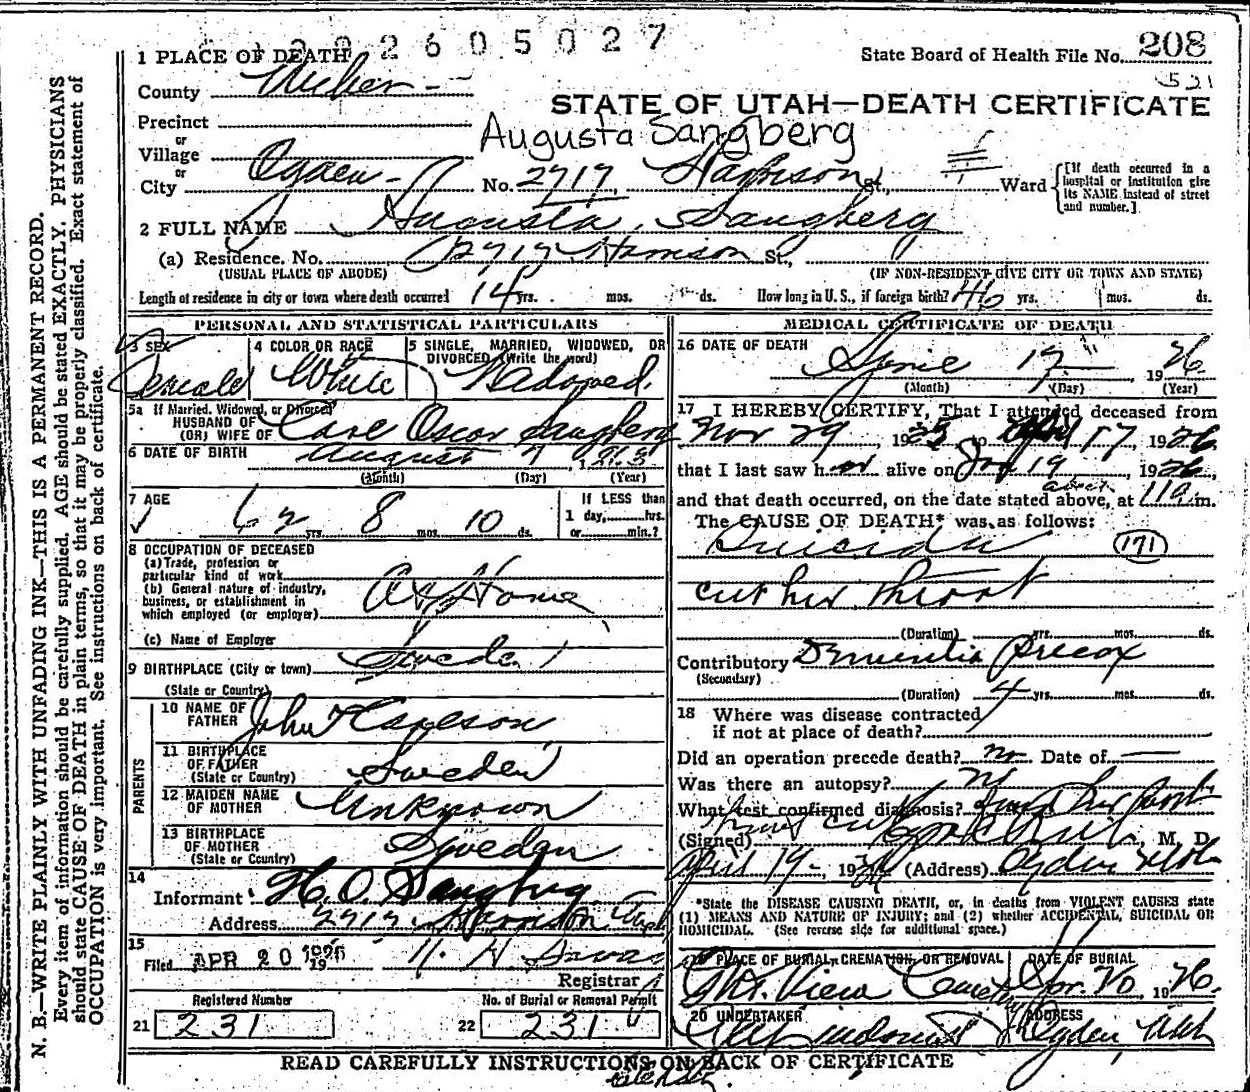 2605027
1 PLACE OF DEATH
State Board of Health File No. 208
521
County Weber
STATE OF UTAH—DEATH CERTIFICATE
Precinct
or
Augusta Sangberg
Village
or
City Ogden No. 2717, Harrison St., Ward
[If death occurred in a hospital or institution give its NAME instead of street and number.]
2 FULL NAME Augusta Sangberg
(a) Residence, No. 2717 Harrison St.,
(USUAL PLACE OF ABODE) (IF NON-RESIDENT GIVE CITY OR TOWN AND STATE)
Length of residence in city or town where death occurred 14 yrs. mos. ds. How long in U. S., if foreign birth? 46 yrs. mos. ds.
PERSONAL AND STATISTICAL PARTICULARS
3 SEX 4 COLOR OR RACE 5 SINGLE, MARRIED, WIDOWED, OR DIVORCED (Write the word)
Female White Widowed.
5a If Married, Widowed, or Divorced
HUSBAND OF
(OR) WIFE OF Carl Oscar Sangberg
6 DATE OF BIRTH August 7
(Month) (Day) (Year)
7 AGE 62 yrs. 8 mos. 10 ds.
If LESS than
1 day, hrs.
or min.?
8 OCCUPATION OF DECEASED
(a) Trade, profession or
particular kind of work
(b) General nature of industry,
business, or establishment in
which employed (or employer) At Home
(c) Name of Employer
9 BIRTHPLACE (City or town) Sweden
(State or Country)
PARENTS
10 NAME OF FATHER John Carlson
11 BIRTHPLACE OF FATHER (State or Country) Sweden
12 MAIDEN NAME OF MOTHER Unknown
13 BIRTHPLACE OF MOTHER (State or Country) Sweden
14
Informant H. O. Sangberg
Address 2717 Harrison
15
Filed APR 20 1926
Registrar
Registered Number No. of Burial or Removal Permit
21 231 22 231
MEDICAL CERTIFICATE OF DEATH
16 DATE OF DEATH April 17 1926.
(Month) (Day) (Year)
17 I HEREBY CERTIFY, That I attended deceased from
Nov 29, 1925 to April 17 1926
that I last saw her alive on 19, 1926,
about
and that death occurred, on the date stated above, at m.
The CAUSE OF DEATH* was as follows:
Suicide
171
cut her throat
(Duration) yrs. mos. ds.
Contributory Dementia Precox
(Secondary)
(Duration) 4 yrs. mos. ds.
18 Where was disease contracted
if not at place of death?
Did an operation precede death? no Date of —
Was there an autopsy? no
What test confirmed diagnosis?
(Signed) , M. D.
April 19, 1926 (Address) Ogden Utah
*State the DISEASE CAUSING DEATH, or, in deaths from VIOLENT CAUSES state
(1) MEANS AND NATURE OF INJURY; and (2) whether ACCIDENTAL, SUICIDAL OR
HOMICIDAL. (See reverse side for additional space.)
19 PLACE OF BURIAL, CREMATION, OR REMOVAL DATE OF BURIAL
Mt. View Cemetery Apr. 20, 1926.
20 UNDERTAKER ADDRESS
Ogden Utah
READ CAREFULLY INSTRUCTIONS ON BACK OF CERTIFICATE
N. B.—WRITE PLAINLY WITH UNFADING INK—THIS IS A PERMANENT RECORD.
Every item of information should be carefully supplied. AGE should be stated EXACTLY. PHYSICIANS
should state CAUSE OF DEATH in plain terms, so that it may be properly classified. Exact statement of
OCCUPATION is very important. See instructions on back of certificate.